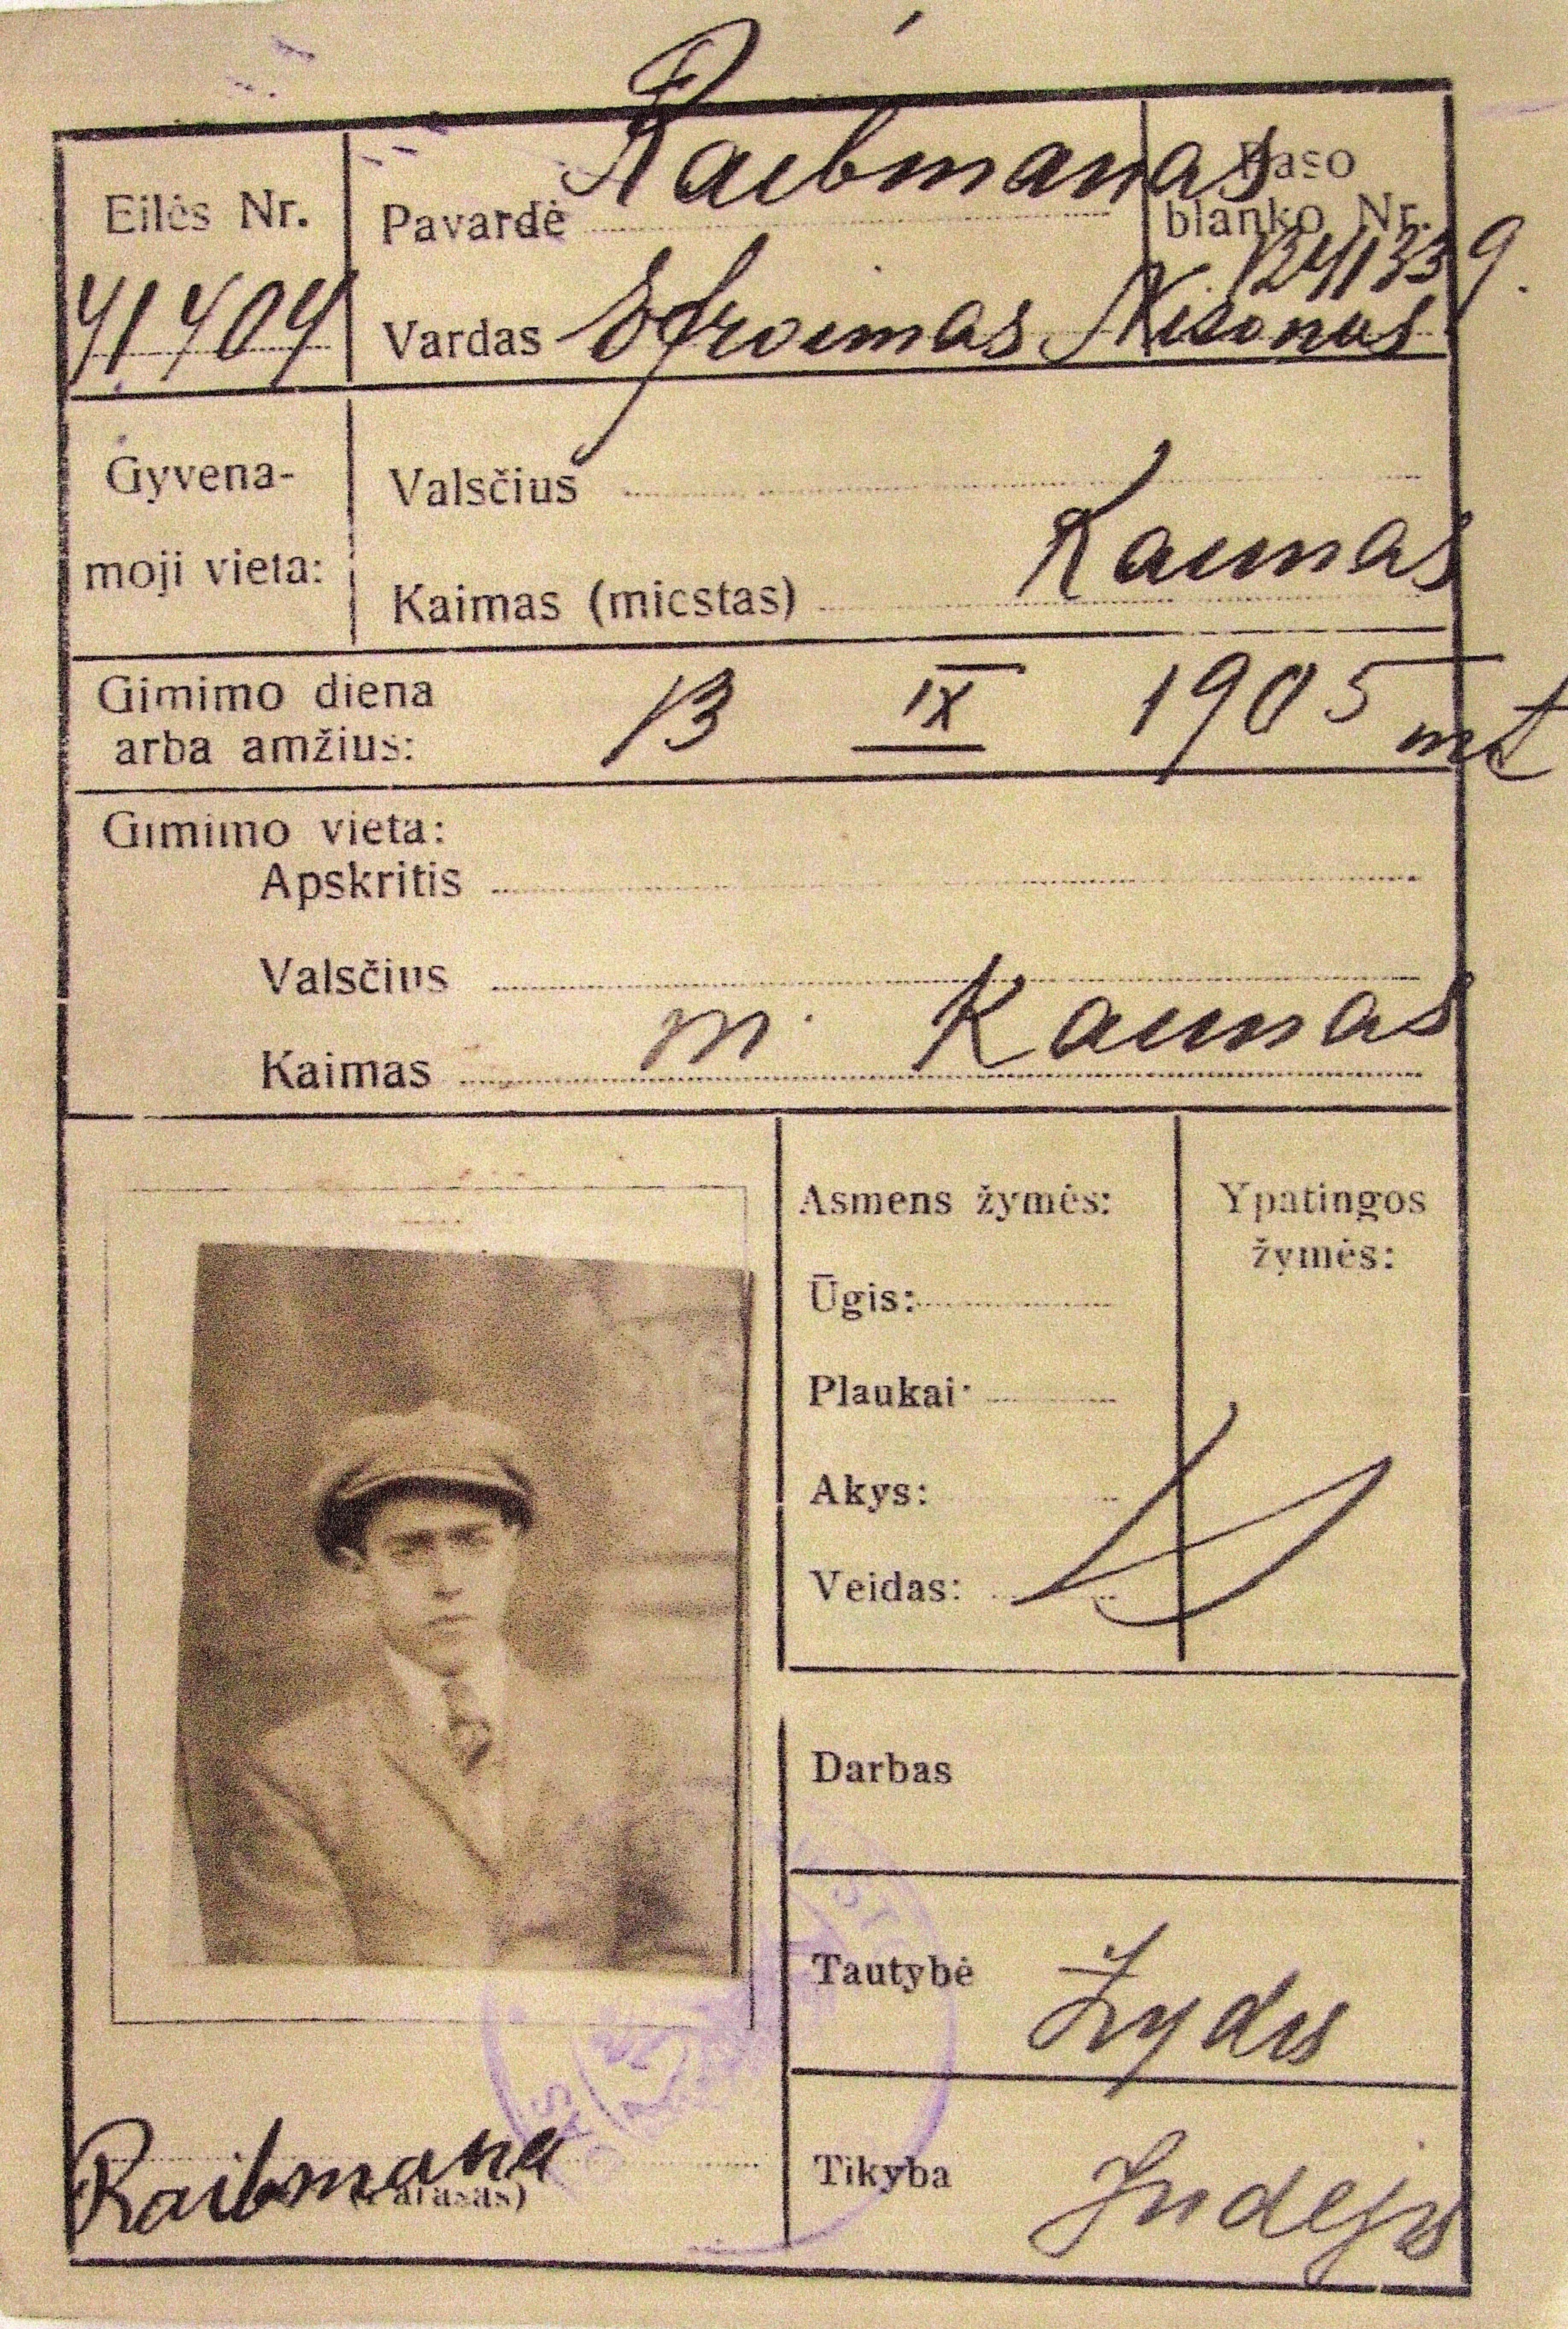 Eilės Nr.
41404
Pavardė Raibmanas
Vardas Efroimas Nisonas
Paso
blanko Nr.
1241339.
Gyvena-
moji vieta:
Valsčius
Kaimas (miestas) Kaunas
Gimimo diena
arba amžius: 13 IX 1905 mt
Gimimo vieta:
Apskritis
Valsčius
Kaimas m. Kaunas
Asmens žymės:
Ūgis:
Plaukai
Akys:
Veidas:
Ypatingos
žymės:
Darbas
Tautybė Žydas
Tikyba Judėjas
Raibmana
(Parašas)